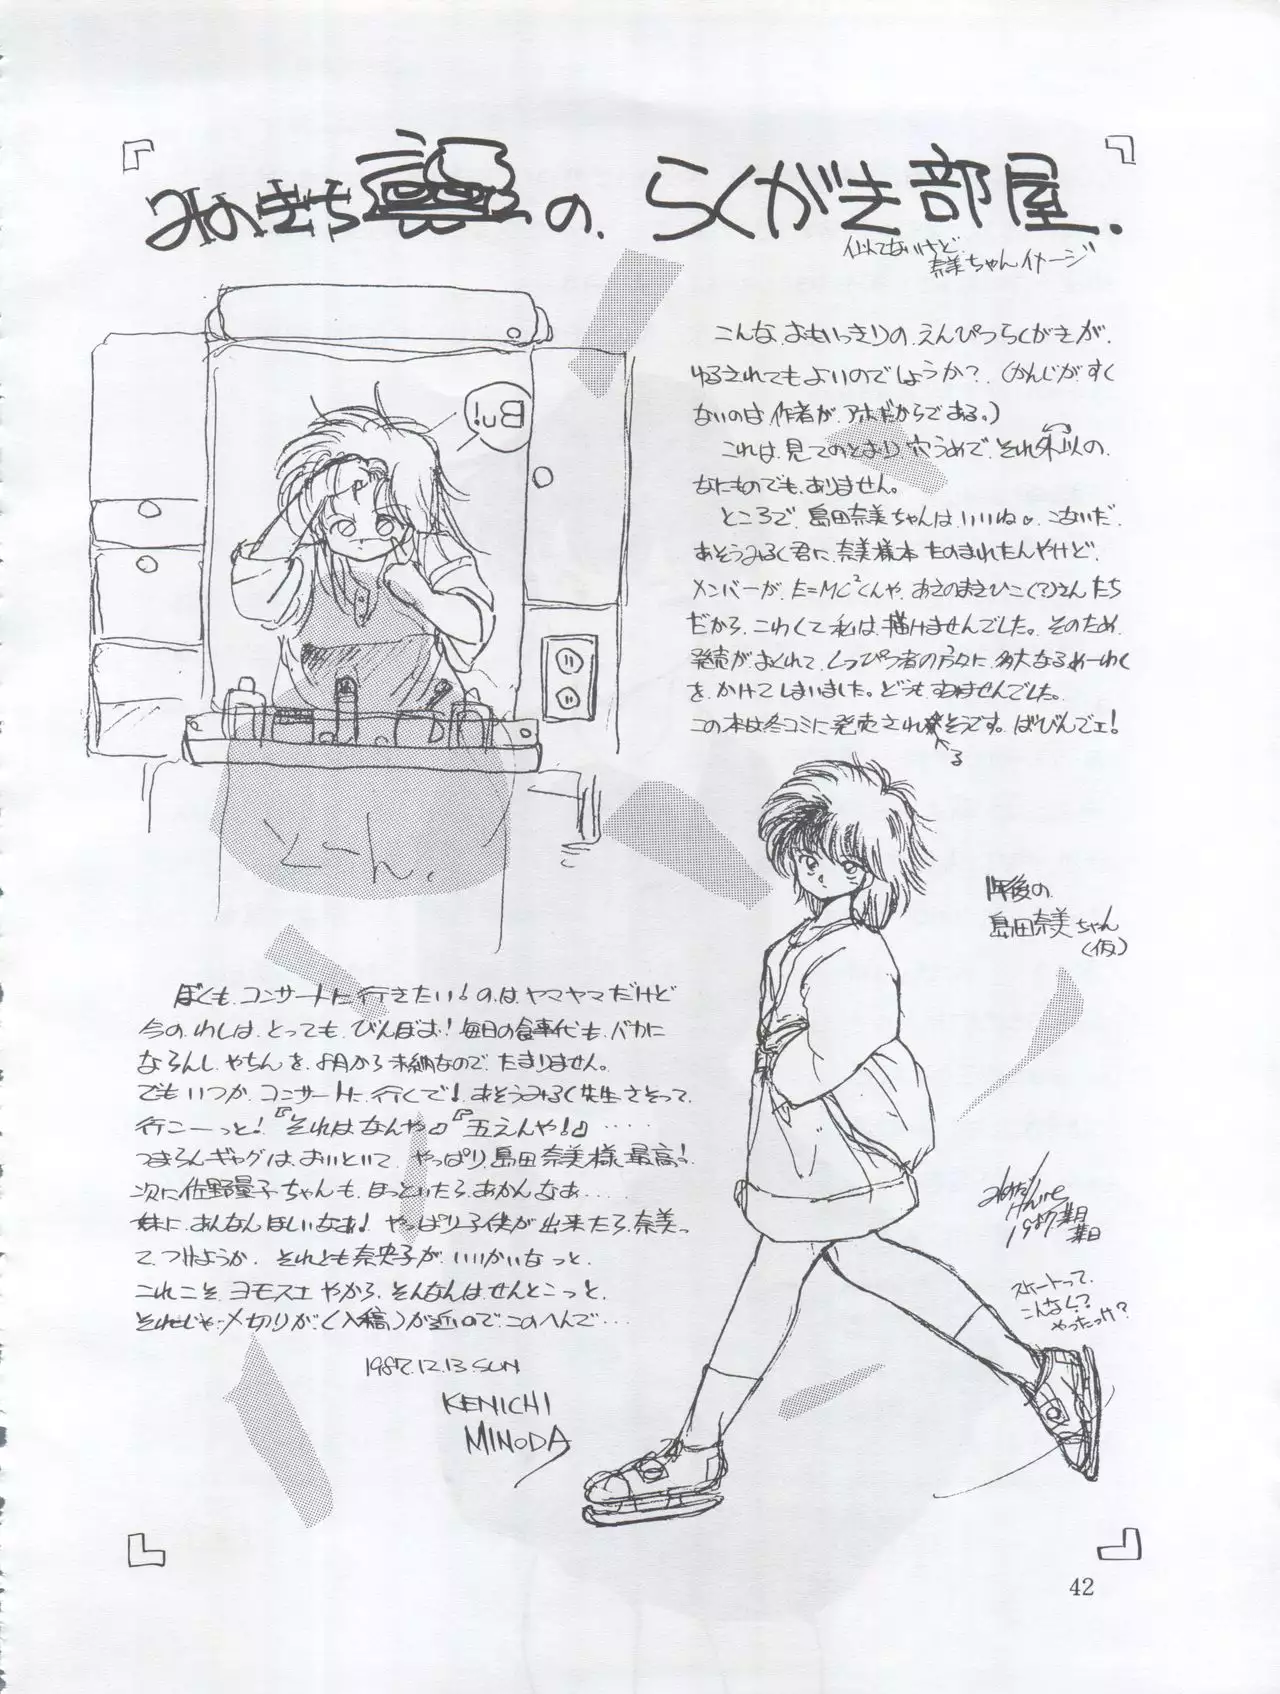 みのきちの、らくがき部屋.
似てないけど
奈美ちゃんイメージ
Bu!
こんな、おもいっきりの、えんぴつらくがきが、
ゆるされてもよいのでしょうか?(かんじがすく
ないのは作者が、アホだからである。)
これは、見てのとおり穴うめで、それ以外の
なにものでも、ありません。
ところで、島田奈美ちゃんはいいね♡、こないだ、
あそうみるく君に、奈美様本たのまれたんやけど、
メンバーが、E=MC²くんや、あさのまさひこ(?)さんたち
だから、こわくて私は、描けませんでした。そのため
発売がおくれて、しっぴつ者の方々に、多大なるめーわく
を、かけてしまいました。どうもすみませんでした。
この本は冬コミに発売されるそうです。ばびんでェ!
とーん.
1年後の
島田奈美ちゃん
(仮)
ぼくも、コンサートに行きたい!のはヤマヤマだけど
今の、わしは、とっても、びんぼお!毎日の食事代も、バカに
ならんし、やちんを、月から未納なので、たまりません。
でも、いつか、コンサートに、行くで!、あそうみるく先生さそって、
行こーっと!『それはなんや』『五えんや!』・・・・
つまらんギャグは、おいといて、やっぱり、島田奈美様、最高!、
次に佐野量子ちゃんも、ほっといたら、あかんなあ・・・・・
妹に、あんなんほしいなぁ!、やっぱり子供が出来たら、奈美っ
て、つけようか、それとも奈央子が、いいかいなっと、
これこそ、ヨモスエやから、そんなんは、せんとこっと、
それじゃ、〆切りが、(入稿)が近いので、このへんで・・・
1987.12.13.SUN
KENICHI
MINODA
1987
スケートって、
こんなん?
やったっけ?
42